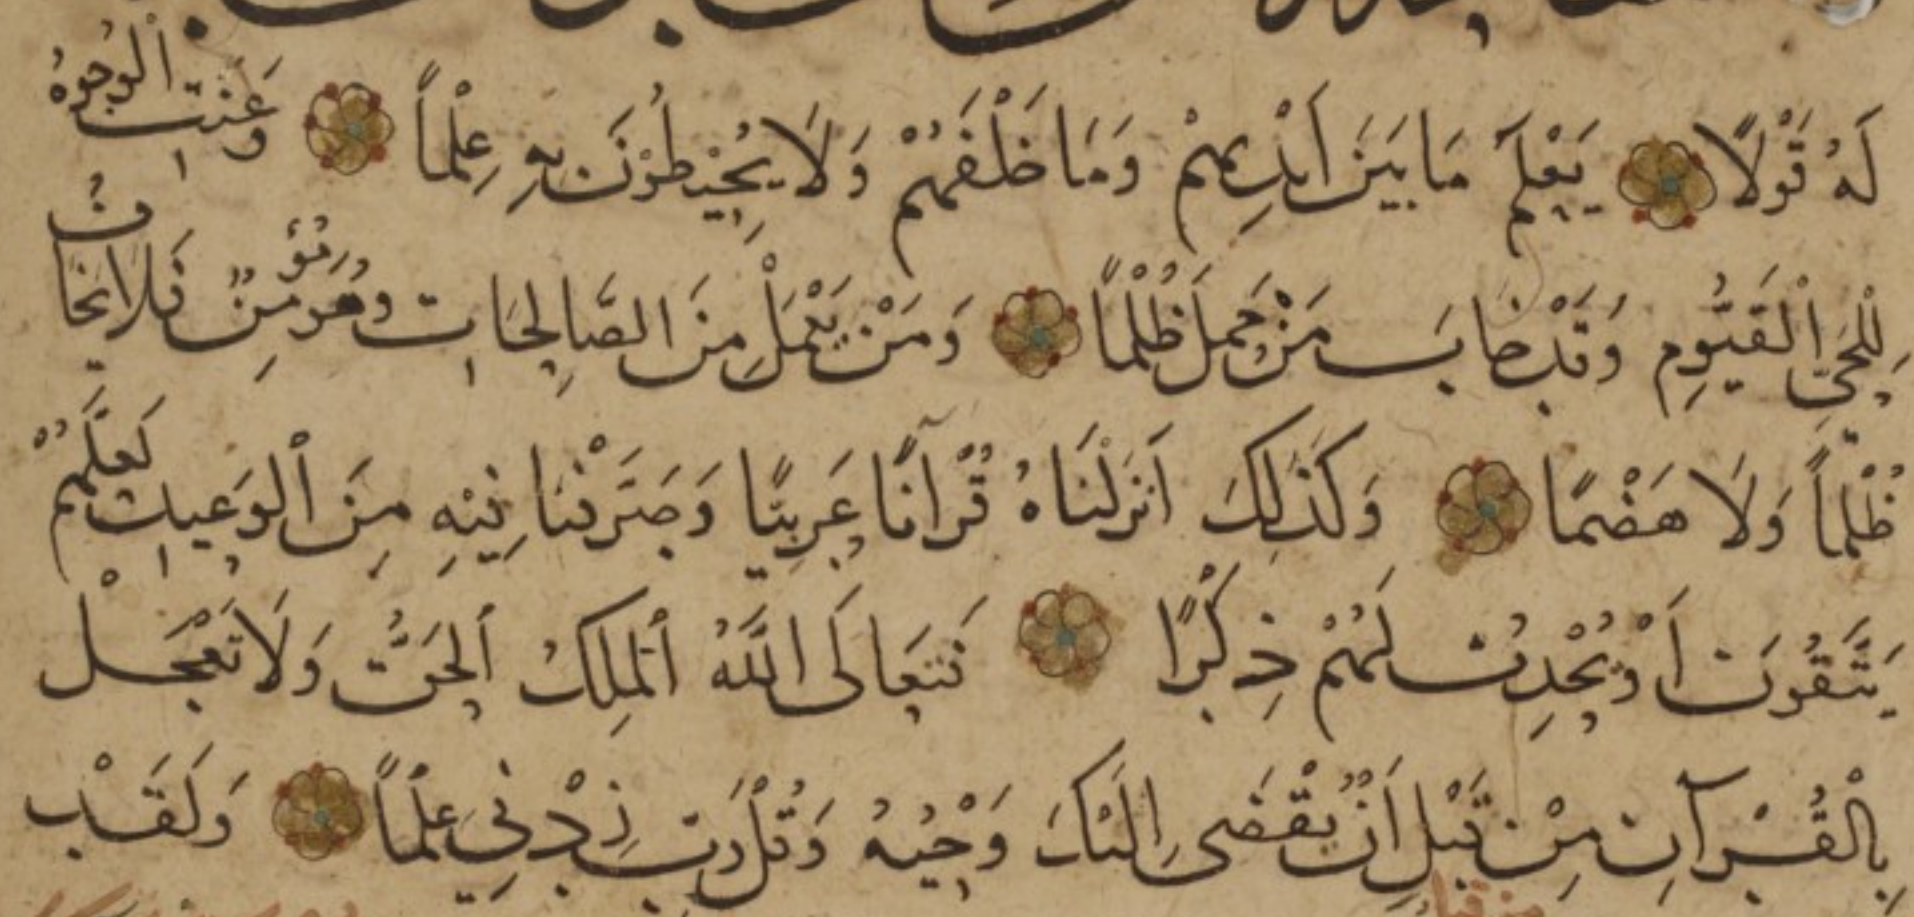 لَهُ قَوْلًا يَعْلَمُ مَا بَيْنَ اَيْدِيهِمْ وَمَا خَلْفَهُمْ وَلَا يُحِيْطُوْنَ بِهِ عِلْماً وَعَنَتِ الْوُجُوهُ
لِلْحَيِّ الْقَيُّومِ وَقَدْ خَابَ مَنْ حَمَلَ ظُلْماً وَمَنْ يَعْمَلْ مِنَ الصَّالِحَاتِ وَهُوَ مُؤْمِنٌ فَلَا يَخَافُ
ظُلْماً وَلَا هَضْمًا وَكَذَلِكَ اَنْزَلْنَاهُ قُرْآنًا عَرَبِيًّا وَصَرَّفْنَا فِيْهِ مِنَ الْوَعِيدِ لَعَلَّهُمْ
يَتَّقُونَ اَوْ يُحْدِثُ لَهُمْ ذِكْرًا فَتَعَالَى اللَّهُ الْمَلِكُ الْحَقُّ وَلَا تَعْجَلْ
بِالْقُرْآنِ مِنْ قَبْلِ اَنْ يُقْضَى اِلَيْكَ وَحْيُهُ وَقُلْ رَبِّ زِدْنِي عِلْماً وَلَقَدْ